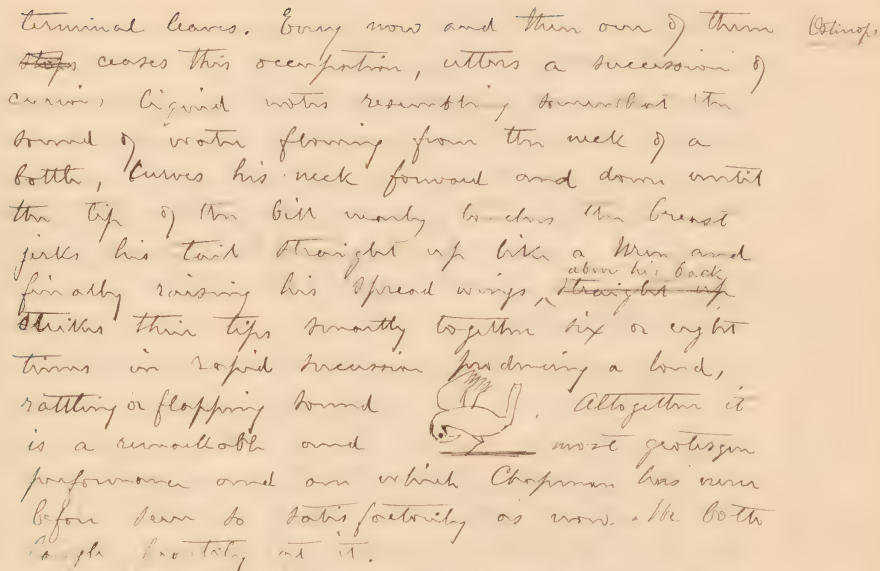 terminal leaves. Every now and then one of them Ostinops
stops ceases this occupation, utters a succession of
curious liquid notes resembling somewhat the
sound of water flowing from the neck of a
bottle, curves his neck forward and down until
the tip of the bill nearly touches the breast
jerks his tail straight up like a Wren and
above his back
finally raising his spread wings ^ straight up
strikes their tips smartly together six or eight
times in rapid succession producing a loud,
rattling or flapping sound . Altogether it
is a remarkable and most grotesque
performance and one which Chapman has never
before seen so satisfactorily as now. We both
laugh heartily at it.